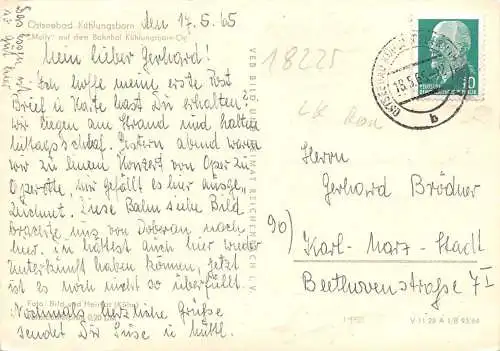 Ostseebad Kühlungsborn
"Molly" auf dem Bahnhof Kühlungsborn-Ost
den 17.5.65
Mein lieber Gerhard!
Ich hoffe meine erste Post
Brief u Karte hast Du erhalten?
Wir liegen am Strand und halten
Mittagsschlaf. Gestern abend waren
wir zu einem Konzert von Oper zu
Operette. Mir gefällt es hier ausge-
zeichnet. Diese Bahn siehe Bild
brachte uns von Doberan nach
hier. Du hättest auch hier wieder
Unterkunft haben können, jetzt
ist es noch nicht so überfüllt.
Nochmals herzliche Grüße
sendet Dir Suse u Mutti.
Das Essen ist
sehr gut hier
Foto: Bild und Heimat
VEB BILD UND HEIMAT REICHENBACH I. V.
18225
18.5.65
b
DEUTSCHE
DEMOKRATISCHE REPUBLIK
10
Herrn
Gerhard Brödner
90)
Karl-Marx-Stadt
Beethovenstraße 7 I
V 11 28 A 1/B 93/64